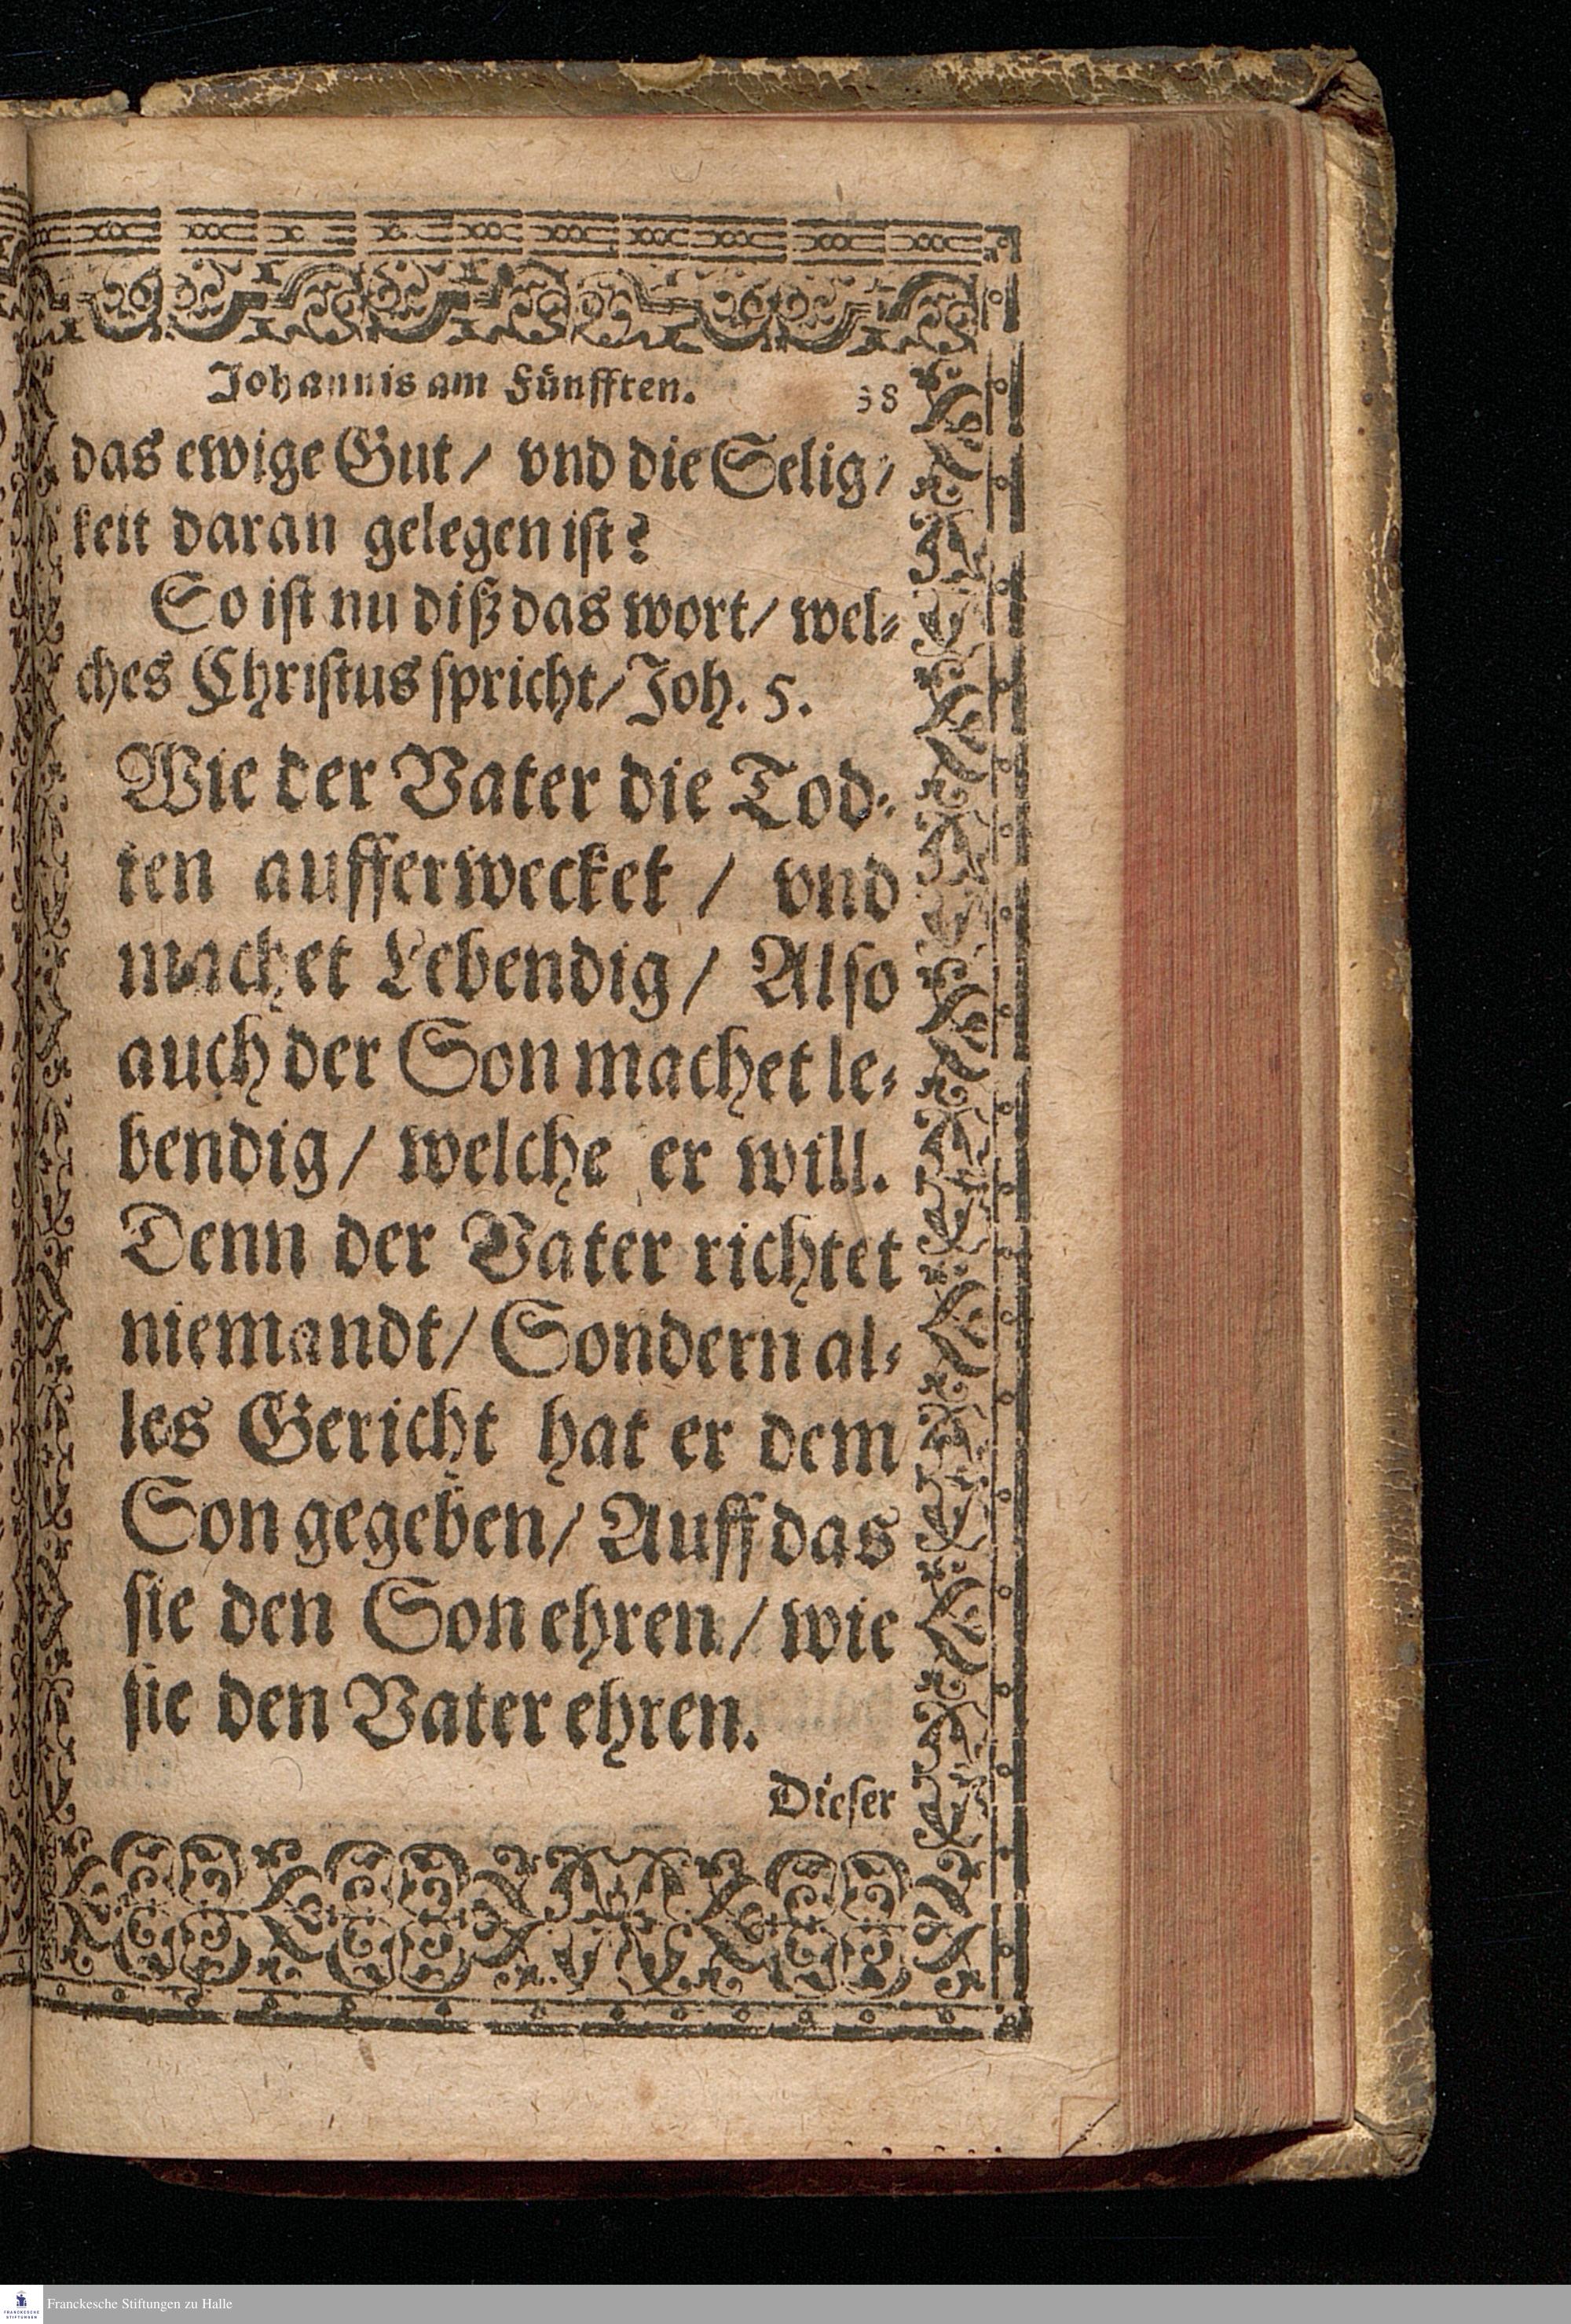 Johannis am Fünfften. 38
das ewige Gut / vnd die Selig-
keit daran gelegen ist?
So ist nu diß das wort / wel-
ches Christus spricht / Joh. 5.
Wie der Vater die Tod-
ten aufferwecket / vnd
machet Lebendig / Also
auch der Son machet le-
bendig / welche er will.
Denn der Vater richtet
niemandt / Sondern al-
les Gericht hat er dem
Son gegeben / Auff das
sie den Son ehren / wie
sie den Vater ehren.
Dieser
FRANCKESCHE
STIFTUNGEN
Franckesche Stiftungen zu Halle